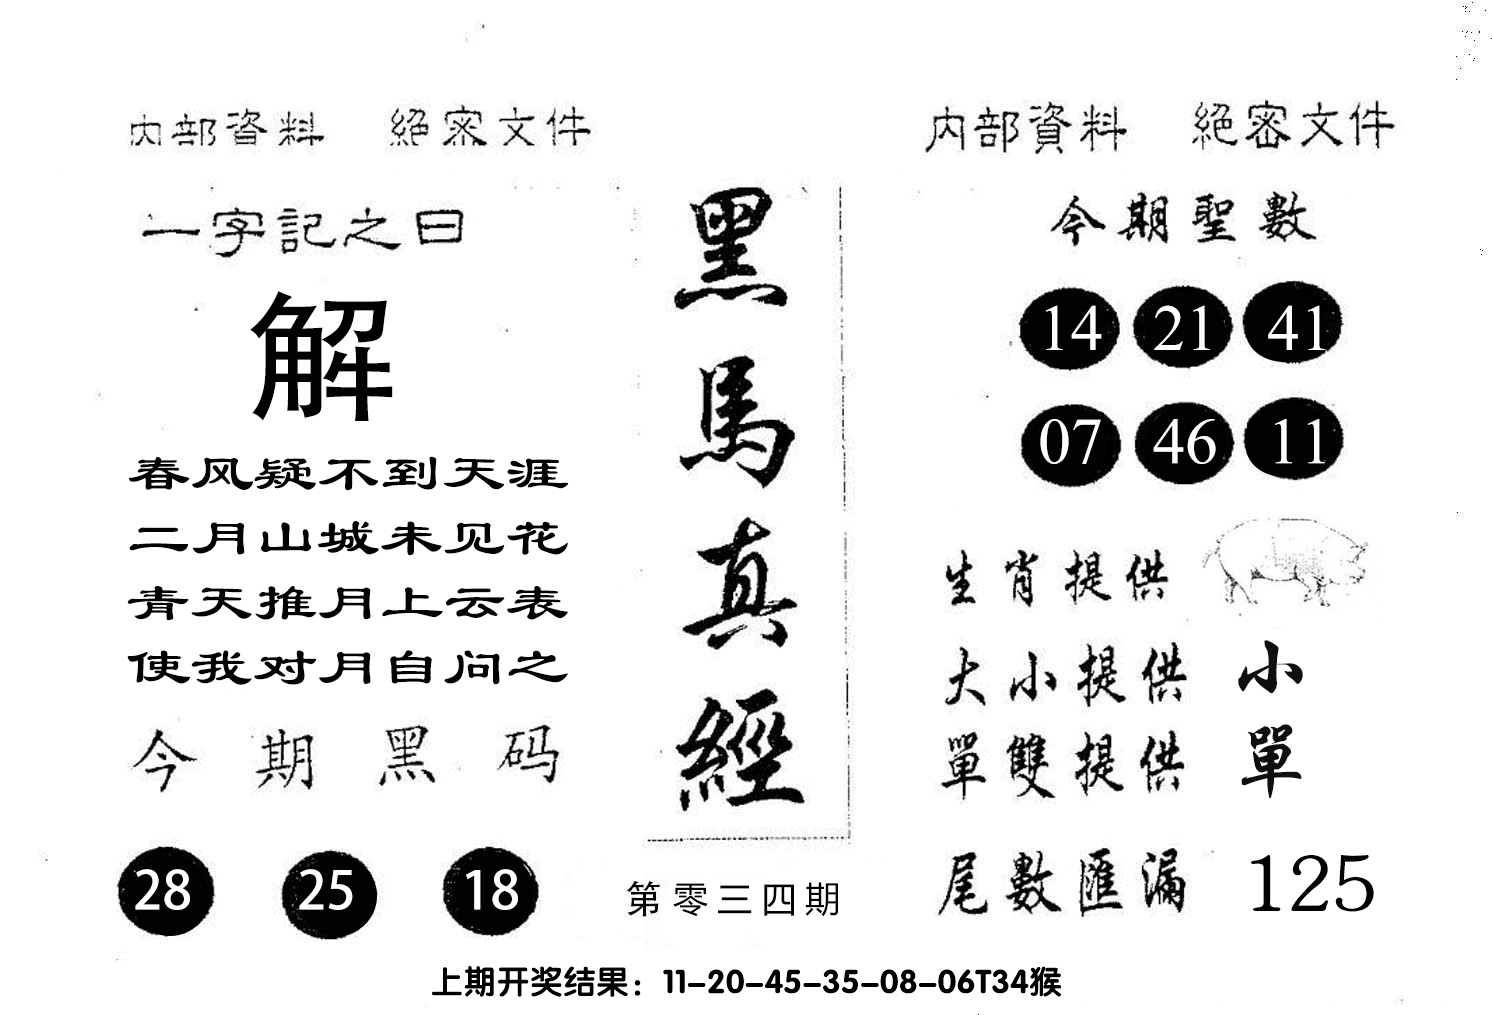 内部資料 絕密文件
一字記之曰
解
春风疑不到天涯
二月山城未见花
青天推月上云表
使我对月自问之
今期黑码
28 25 18
黑馬真經
第零三四期
内部資料 絕密文件
今期聖數
14 21 41
07 46 11
生肖提供
大小提供 小
單雙提供 單
尾數匯漏 125
上期开奖结果：11-20-45-35-08-06T34猴